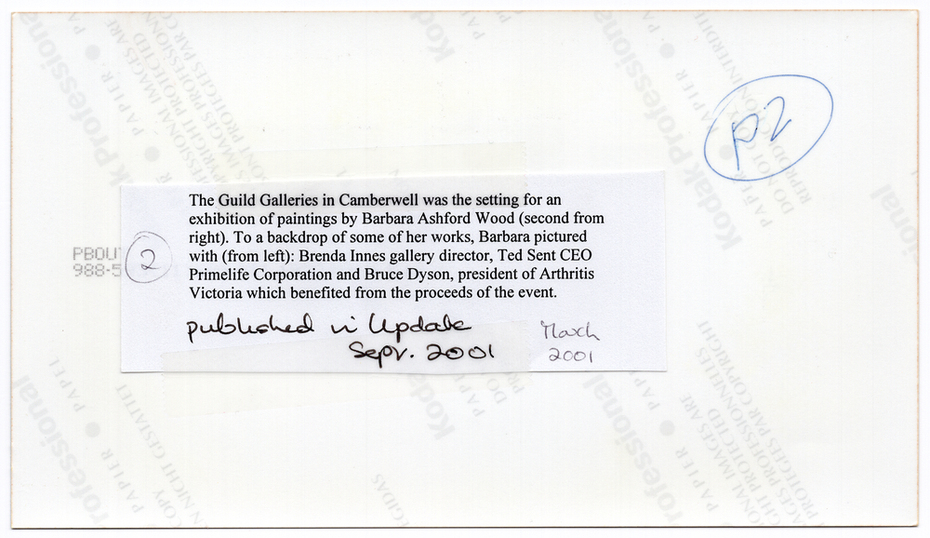 p2
The Guild Galleries in Camberwell was the setting for an
exhibition of paintings by Barbara Ashford Wood (second from
right). To a backdrop of some of her works, Barbara pictured
with (from left): Brenda Innes gallery director, Ted Sent CEO
Primelife Corporation and Bruce Dyson, president of Arthritis
Victoria which benefited from the proceeds of the event.
2
published in Update
Sepr. 2001
March
2001
Kodak Professional
PAPIER